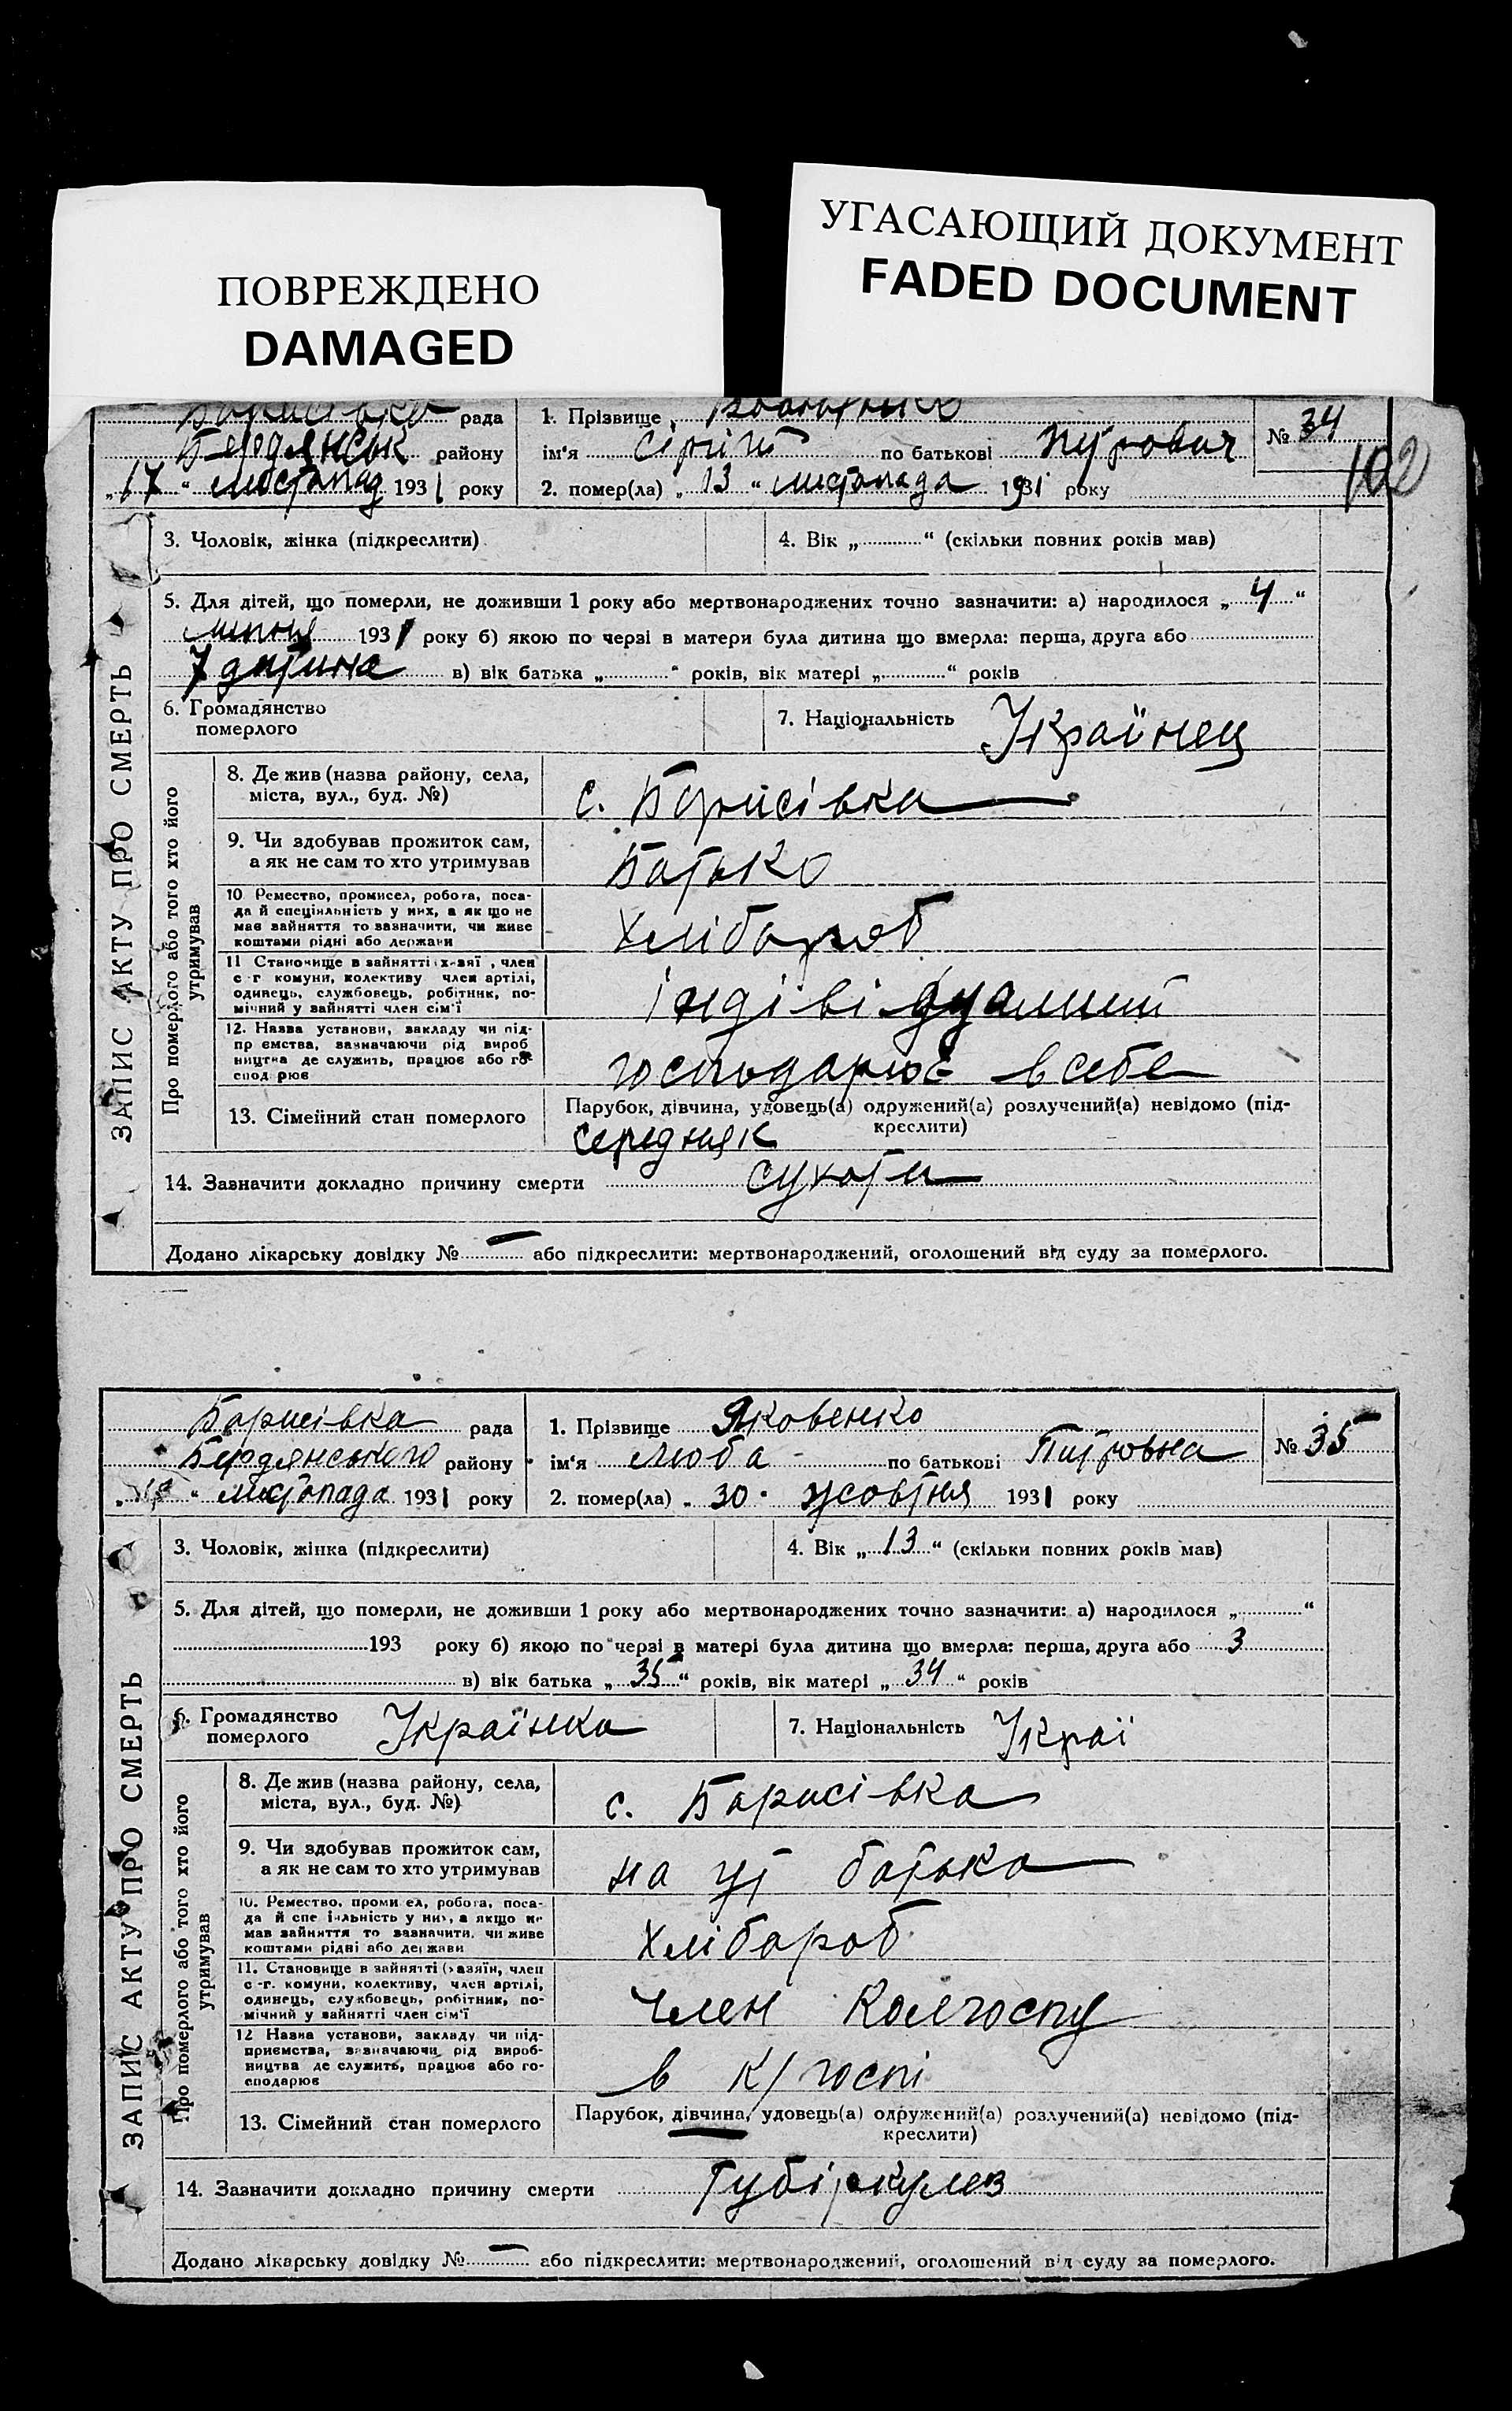 ПОВРЕЖДЕНО
DAMAGED
УГАСАЮЩИЙ ДОКУМЕНТ
FADED DOCUMENT
Борисівка рада
Бердянськ району
„17" листопад 1931 року
1. Прізвище
ім'я Сергій по батькові Петрович
2. помер(ла) „13" листопада 1931 року
№ 34
102
ЗАПИС АКТУ ПРО СМЕРТЬ
3. Чоловік, жінка (підкреслити)
4. Вік „ " (скільки повних років мав)
5. Для дітей, що померли, не доживши 1 року або мертвонароджених точно зазначити: а) народилося „4"
1931 року б) якою по черзі в матери була дитина що вмерла: перша, друга або
7 дитина в) вік батька „ " років, вік матері „ " років
6. Громадянство
померлого
7. Національність Українец
Про померлого або того хто його
утримував
8. Де жив (назва району, села,
міста, вул., буд. №)
с. Борисівка
9. Чи здобував прожиток сам,
а як не сам то хто утримував
Батько
10 Ремество, промисел, робота, поса-
да й спеціяльність у них, а як що не
має вайняття то вазначити, чи живе
коштами рідні або держави
Хлібороб
11 Становище в зайнятті (х-зяї , член
с г комуни, колективу член артілі,
одинець, службовець, робітник, по-
мічний у вайнятті член сім'ї
індівідуалний
12. Назва установи, закладу чи під-
пр ємства, вазначаючи рід вироб
ництва де служить, працює або го-
спод рює
господарює в себе
13. Сімейний стан померлого
Парубок, дівчина, удовець(а) одружений(а) розлучений(а) невідомо (під-
креслити)
середняк
14. Зазначити докладно причину смерти сухоти
Додано лікарську довідку № — або підкреслити: мертвонароджений, оголошений від суду за померлого.
Борисівка рада
Бердянського району
листопада 1931 року
1. Прізвище Яковенко
ім'я Люба по батькові Питровна
2. помер(ла) „30" жовтня 1931 року
№ 35
ЗАПИС АКТУ ПРО СМЕРТЬ
3. Чоловік, жінка (підкреслити)
4. Вік „13" (скільки повних років мав)
5. Для дітей, що померли, не доживши 1 року або мертвонароджених точно зазначити: а) народилося „ "
193 року б) якою по черзі в матері була дитина що вмерла: перша, друга або 3
в) вік батька „35" років, вік матері „34" років
6. Громадянство
померлого
Українка
7. Національність Украї
Про померлого або того хто його
утримував
8. Де жив (назва району, села,
міста, вул., буд. №)
с. Борисівка
9. Чи здобував прожиток сам,
а як не сам то хто утримував
на ут батька
10. Ремество, проми ел, робота, поса-
да й спе іяльність у них, а якщо не
мав зайняття то вазначити, чи живе
коштами рідні або держави
Хлібороб
11. Становище в зайнятті (хазяїн, член
с -г. комуни, колективу, член артілі,
одинець, службовець, робітник, по-
мічний у зайнятті член сім'ї
член колгоспу
12 Назва установи, закладу чи під-
приємства, вазначаючи рід вироб-
ництва де служить, працює або го-
сподарює
в к/госпі
13. Сімейний стан померлого
Парубок, дівчина, удовець(а) одружений(а) розлучений(а) невідомо (під-
креслити)
14. Зазначити докладно причину смерти Тубіркулез
Додано лікарську довідку № — або підкреслити: мертвонароджений, оголошений від суду за померлого.